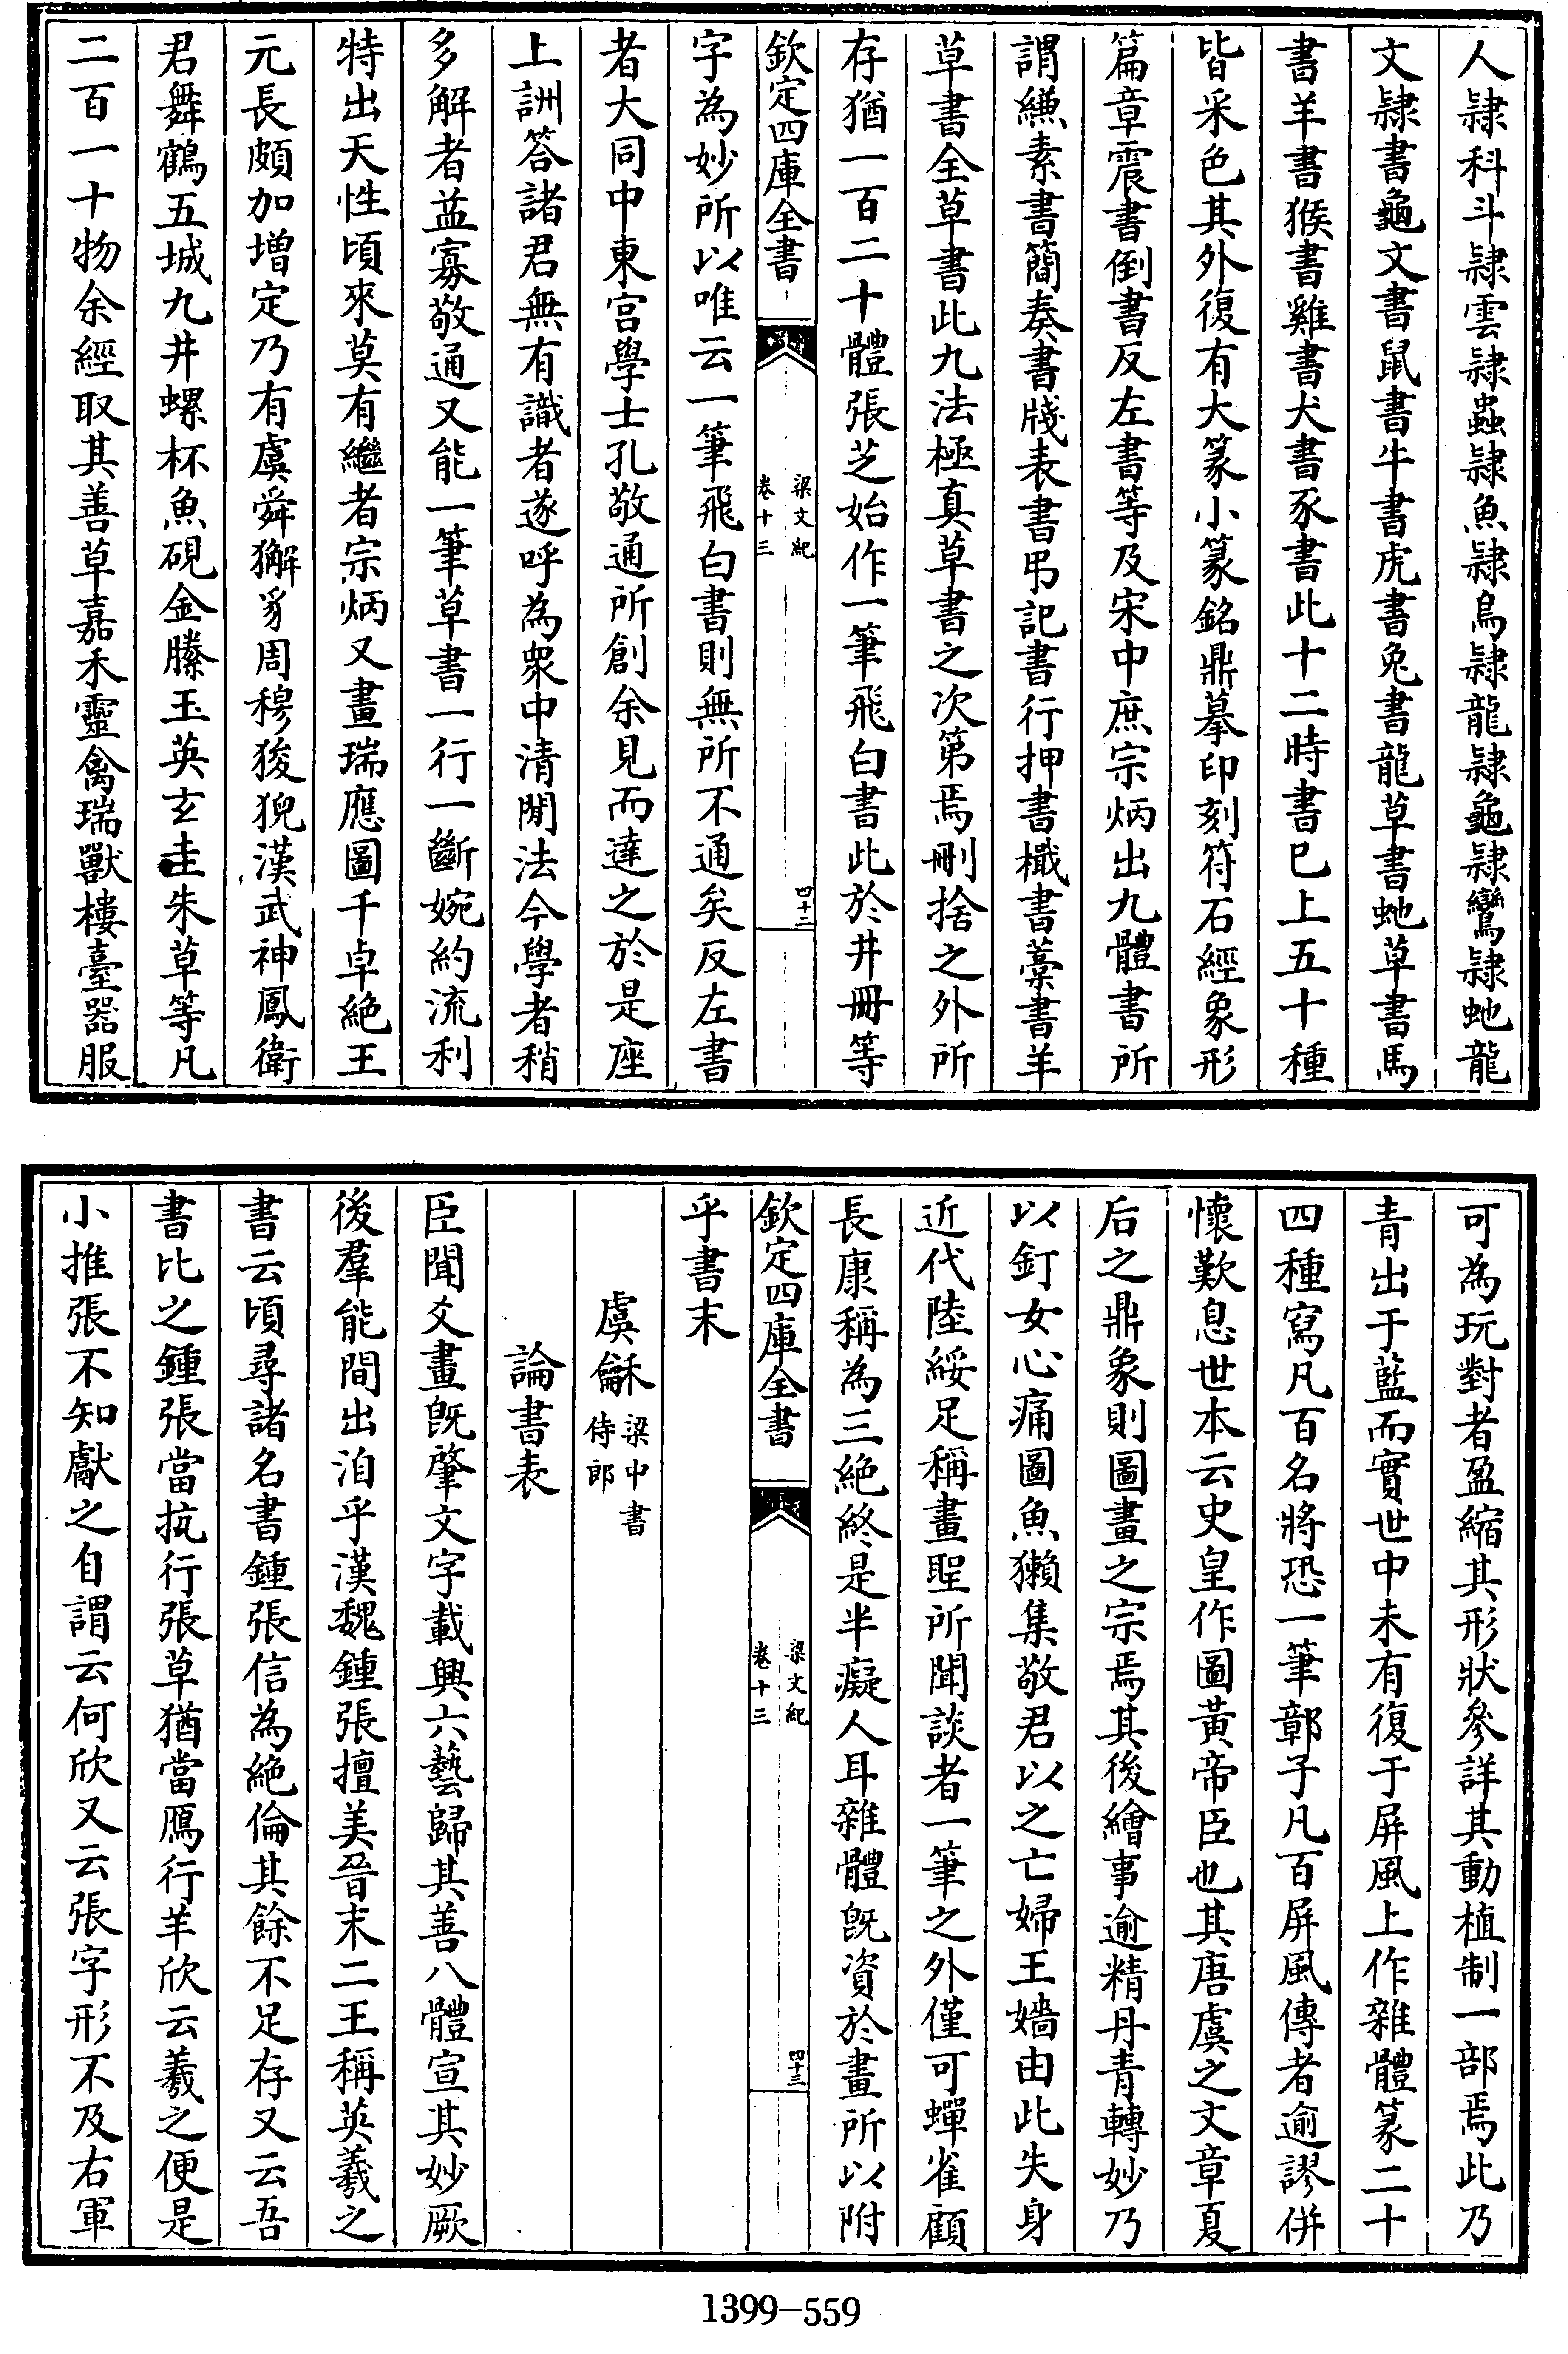 人隷科斗隷雲隷蟲隷魚隷鳥隷龍隷龜隷鸞隷虵龍
文隷書龜文書鼠書牛書虎書兔書龍草書虵草書馬
書羊書猴書雞書犬書豕書此十二時書已上五十種
皆采色其外復有大篆小篆銘鼎摹印刻符石經象形
篇章震書倒書反左書等及宋中庶宗炳出九體書所
謂縑素書簡奏書牋表書弔記書行押書檝書藁書羊
草書全草書此九法極真草書之次第焉刪捨之外所
存猶一百二十體張芝始作一筆飛白書此於井冊等
欽定四庫全書
梁文紀
卷十三
四十二
字為妙所以唯云一筆飛白書則無所不通矣反左書
者大同中東宫學士孔敬通所創余見而達之於是座
上詶答諸君無有識者遂呼為衆中清閒法今學者稍
多解者益寡敬通又能一筆草書一行一斷婉約流利
特出天性頃來莫有繼者宗炳又畫瑞應圖千卓絶王
元長頗加增定乃有虞舜獬豸周穆狻猊漢武神鳳衛
君舞鶴五城九井螺杯魚硯金縢玉英玄圭朱草等凡
二百一十物余經取其善草嘉禾靈禽瑞獸樓臺器服
可為玩對者盈縮其形狀參詳其動植制一部焉此乃
青出于藍而實世中未有復于屏風上作雜體篆二十
四種寫凡百名將恐一筆鄣子凡百屏風傳者逾謬併
懷歎息世本云史皇作圖黃帝臣也其唐虞之文章夏
后之鼎象則圖畫之宗焉其後繪事逾精丹青轉妙乃
以釘女心痛圖魚獺集敬君以之亡婦王嬙由此失身
近代陸綏足稱畫聖所聞談者一筆之外僅可蟬雀顧
長康稱為三絶終是半癡人耳雜體既資於畫所以附
欽定四庫全書
梁文紀
卷十三
四十三
乎書末
虞龢 梁中書侍郎
論書表
臣聞爻畫既肇文字載興六藝歸其善八體宣其妙厥
後羣能間出洎乎漢魏鍾張擅美晉末二王稱英羲之
書云頃尋諸名書鍾張信為絶倫其餘不足存又云吾
書比之鍾張當抗行張草猶當鴈行羊欣云羲之便是
小推張不知獻之自謂云何欣又云張字形不及右軍
1399—559